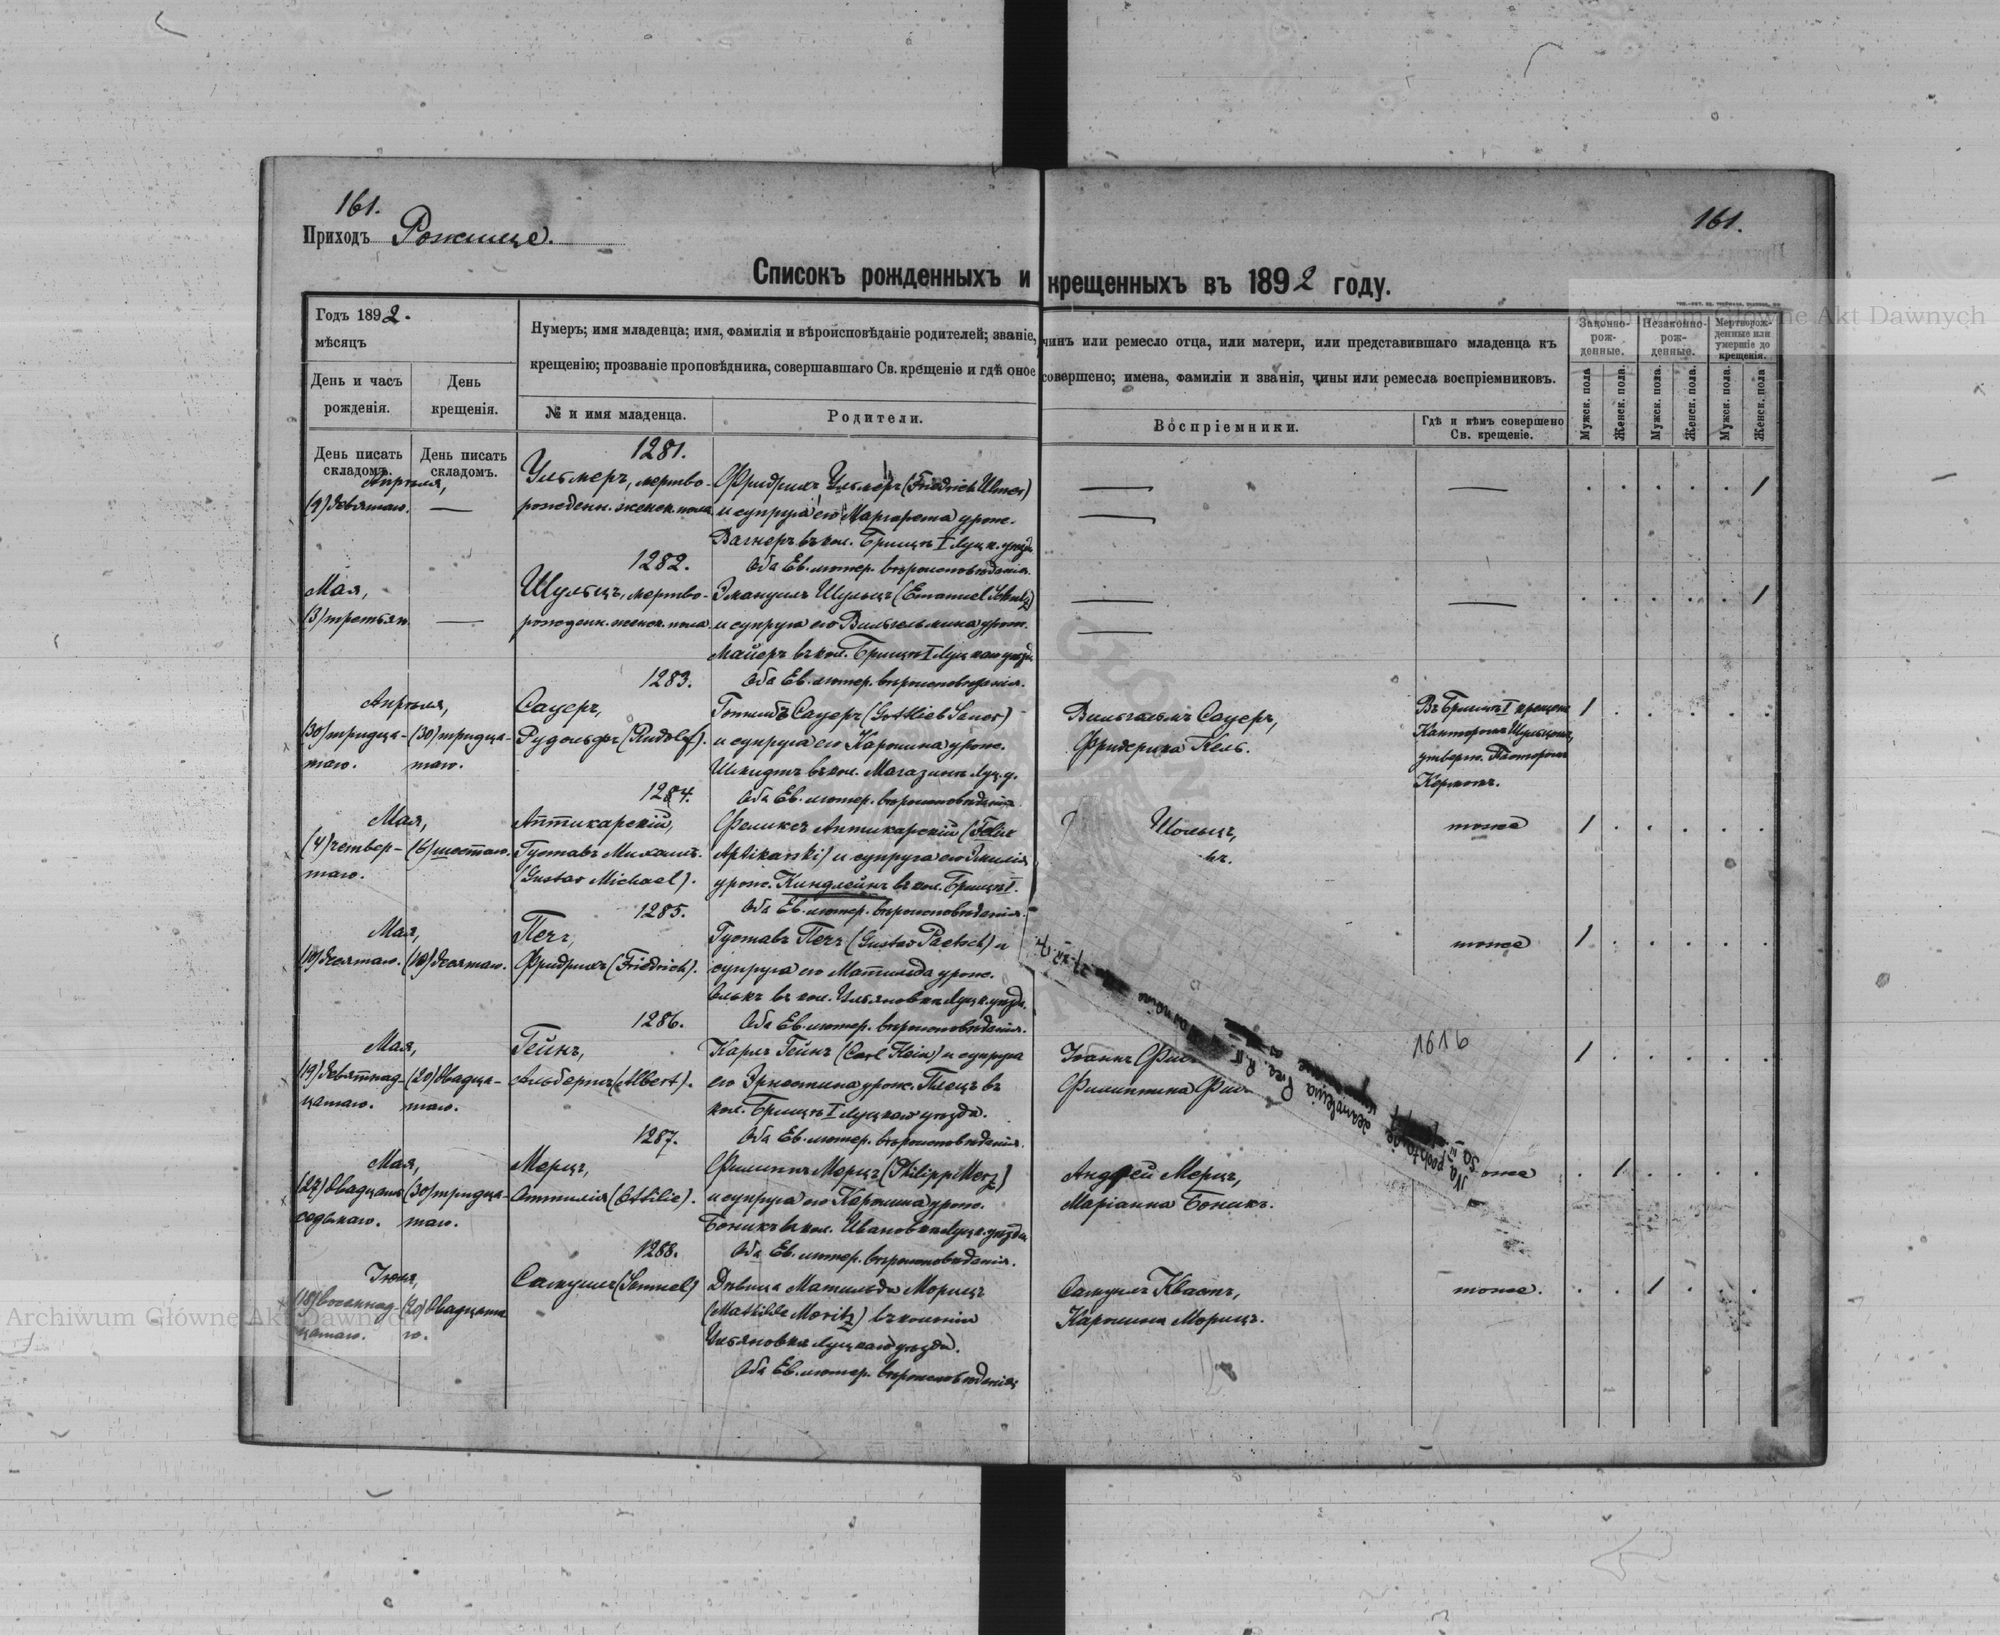 161.
Приходъ Рожище.
161.
Списокъ рожденныхъ и крещенныхъ въ 1892 году.
Годъ 1892.
мѣсяцъ
День и часъ рожденія.
День крещенія.
Нумеръ; имя младенца; имя, фамилія и вѣроисповѣданіе родителей; званіе, чинъ или ремесло отца, или матери, или представившаго младенца къ
крещенію; прозваніе проповѣдника, совершавшаго Св. крещеніе и гдѣ оное совершено; имена, фамиліи и званія, чины или ремесла воспріемниковъ.
№ и имя младенца.
Родители.
Воспріемники.
Гдѣ и кѣмъ совершено
Св. крещеніе.
Законно-
рож-
денные.
Незаконно-
рож-
денные.
Мертворож-
денные или
умершіе до
крещенія.
Мужск. пола
Женск. пола.
Мужск. пола.
Женск. пола.
Мужск. пола
Женск. пола
День писать
складомъ.
День писать
складомъ.
1281.
Апрѣля,
(9) девятаго.
Ульмеръ, мертво-
рожденн. женск. пола
Фридрихъ Ульмеръ (Friedrich Ulmer)
и супруга его Маргарета урож.
Вагнеръ въ кол. Брищѣ I Луцк. уѣзд.
Оба Ев. лютер. вѣроисповѣданія.
1
1282.
Мая,
(3) третьяго
Шульцъ, мертво-
рожденн. женск. пола
Эмануилъ Шульцъ (Emanuel Schultz)
и супруга его Вильгельмина урож.
Майеръ въ кол. Брищѣ I Луцкаго уѣзд.
Оба Ев. лютер. вѣроисповѣданія.
1
1283.
Апрѣля,
(30) тридца-
таго.
(30) тридца-
таго.
Сауеръ,
Рудольфъ (Rudolf).
Готлибъ Сауеръ (Gottlieb Sauer)
и супруга его Каролина урож.
Шмидтъ въ кол. Магазинъ Луц. у.
Оба Ев. лютер. вѣроисповѣданія
Вильгельмъ Сауеръ,
Фридерика Кель.
Въ Брищѣ I крещенъ
Канторомъ Шульцомъ,
утвержд. Пасторомъ
Кермомъ.
1
1284.
Мая,
(4) четвер-
таго.
(6) шестаго.
Аптикарскій,
Густавъ Михаилъ.
(Gustav Michael).
Феликсъ Аптикарскій (Felix
Aptikarski) и супруга его Эмилія
урож. Киндлейнъ въ кол. Брищѣ I.
Оба Ев. лютер. вѣроисповѣданія.
Шольцъ,
тоже
1
1285.
Мая,
(10) десятаго.
(10) десятаго.
Печъ,
Фридрихъ (Friedrich).
Густавъ Печъ (Gustav Paetsch) и
супруга его Матильда урож.
Олькъ въ кол. Ульяновка Луцк. уѣзд.
Оба Ев. лютер. вѣроисповѣданія.
тоже
1
1286.
Мая,
(19) девятнад-
цатаго.
(20) двадца-
таго.
Гейнъ,
Альбертъ (Albert).
Карлъ Гейнъ (Carl Hein) и супруга
его Эрнестина урож. Плецъ въ
кол. Брищѣ I Луцкаго уѣзда.
Оба Ев. лютер. вѣроисповѣданія.
Іоаннъ
Филиппина
1616
1
1287.
Мая,
(27) двадцать
седьмаго.
(30) тридца-
таго.
Мерцъ,
Оттилія (Ottilie).
Филиппъ Мерцъ (Philipp Merz)
и супруга его Каролина урож.
Боникъ въ кол. Ивановка Луцк. уѣзда
Оба Ев. лютер. вѣроисповѣданія.
Андрей Мерцъ,
Маріанна Боникъ.
1
1288.
Іюня,
(18) восемнад-
цатаго.
(20) двадцата-
го.
Самуилъ (Samuel)
Дѣвица Матильда Морицъ
(Mathilde Moritz) въ колоніи
Ульяновка Луцкаго уѣзда.
Оба Ев. лютер. вѣроисповѣданія
Самуилъ Квастъ,
Каролина Морицъ.
тоже.
1
Archiwum Główne Akt Dawnych
Archiwum Główne Akt Dawnych